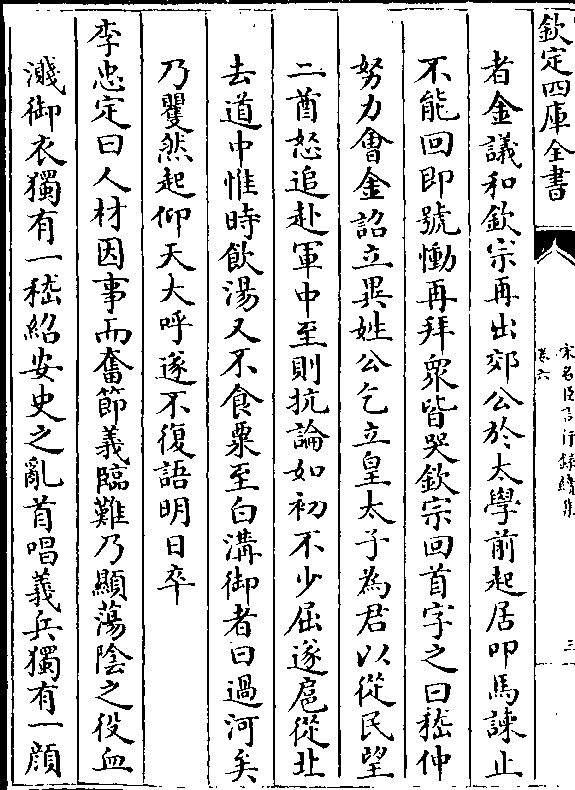 欽定四庫全書
宋名臣言行録續集
卷六
三
者金議和欽宗再出郊公於太學前起居叩馬諫止
不能回即號慟再拜眾皆哭欽宗回首字之曰嵇仲
努力會金詔立異姓公乞立皇太子為君以從民望
二酋怒追赴軍中至則抗論如初不少屈遂扈從北
去道中惟時飲湯又不食粟至白溝御者曰過河矣
乃矍然起仰天大呼遂不復語明日卒
李忠定曰人材因事而奮節義臨難乃顯蕩陰之役血
濺御衣獨有一嵇紹安史之亂首唱義兵獨有一顔